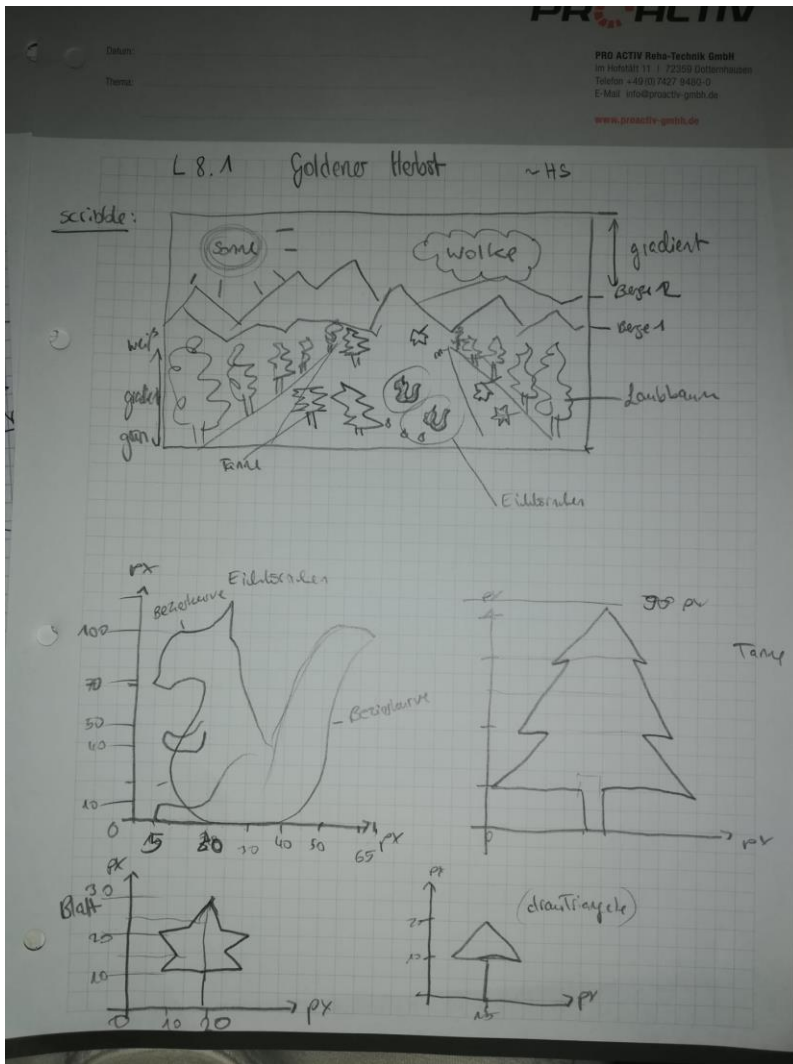 PRO ACTIV
Datum:
Thema:
PRO ACTIV Reha-Technik GmbH
Im Hofstätt 11 | 72359 Dotternhausen
Telefon +49 (0) 7427 9480-0
E-Mail info@proactiv-gmbh.de
www.proactiv-gmbh.de
L 8.1 Goldener Herbst ~HS
scribble:
Sonne
Wolke
gradient
Berge 2
Berge 1
weiß
grün
Laubbaum
Tanne
Eichhörnchen
px
Eichhörnchen
Bezierkurve
100
70
50
40
10
0
Bezierkurve
15
20
30
40
50
65 px
90 px
Tanne
0
px
Blatt
px
30
20
10
0
10
20
px
(drawTriangle)
px
20
10
15
px